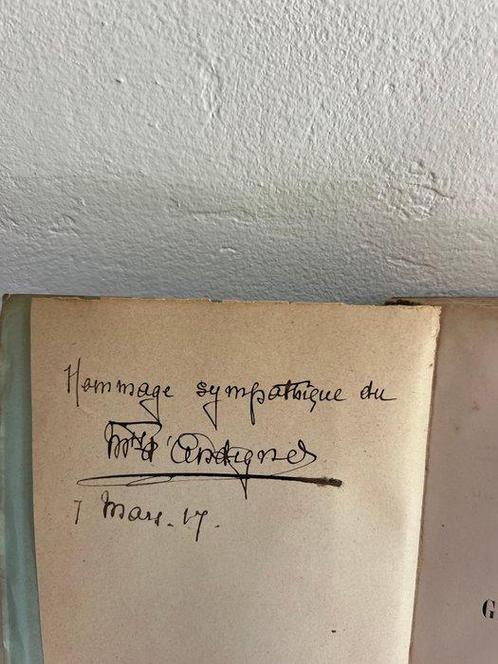 Hommage sympathique du
Mis d'Andigné
7 Mars. 17.
G